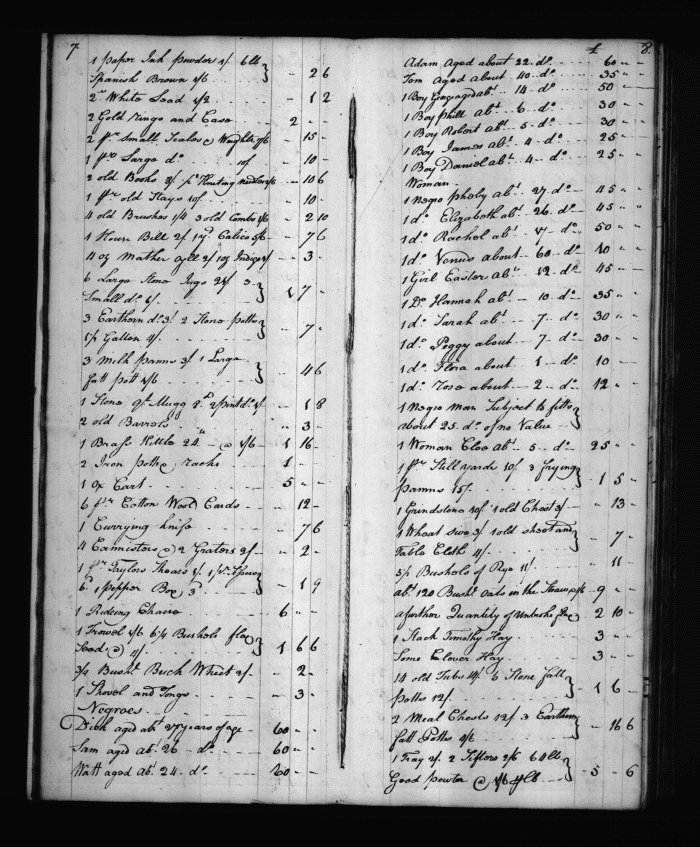 7
1 paper Ink powder 1/ 6 lb }
Spanish Brown 1/6 - 2 6
2 lb White Lead 1/2 - 1 2
2 Gold Rings and Case 2 - -
2 pr small Scales & Weights 7/6 - 15 -
1 pr Large do 10/ - 10 -
2 old Books 2/ - 10 6
1 pr old Stays 10/ - 10 -
4 old Brushes 1/4 3 old Combs 1/6 - 2 10
1 Hewn Bill 2/ 1 yd Calico 5/6 - 7 6
4 oz Mather 2/ 1 oz Indigo - 3 -
6 Large Stone Jugs 2 }
Small do 6/ 1 7 -
3 Earthorn do 3/ 2 Stone potts }
1/2 Gallon - 7 -
3 Milk panns 3/ 1 Large }
fatt pott 1/6 - 4 6
1 Stone qt Mugg 2 pint do - 1 8
2 old Barrels - 3 -
1 Brass Kettle 24 @ 1/6 1 16 -
2 Iron potts & racks 1 - -
1 Ox Cart 5 - -
6 pr Cotton Wool Cards - 12 -
1 Currying knife - 7 6
4 Cannisters & 2 Graters 2/ - 2 -
1 pr Taylors Shears }
6d 1 pepper Box 3 - 1 9
1 Riding Chair 6 - -
1 Trowel 1/6 6 1/4 Bushels flax }
Seed @ 4/ 1 6 6
3/4 Busht Buck Wheet 2/ - 2 -
1 Shovel and Tongs - 3 -
Negroes
Dick aged abt 27 years of age 60 - -
Sam aged abt 26 do 60 - -
Watt aged abt 24 do 60 - -
£ 8
Adam Aged about 22 do 60 - -
Tom Aged about 40 do 35 - -
1 Boy abt 14 do 50 - -
1 Boy Phill abt 6 do 30 - -
1 Boy Robert abt 5 do 30 - -
1 Boy James abt 4 do 25 - -
1 Boy Daniel abt 4 do 25 - -
Woman
1 Negro Pheby abt 27 do 45 - -
1 do Elizabeth abt 26 do 45 - -
1 do Rachel abt 17 do 50 - -
1 do Venus about 60 do 10 - -
1 Girl Easter abt 12 do 45 - -
1 Do Hannah abt 10 do 35 - -
1 do Sarah abt 7 do 30 - -
1 do Peggy about 7 do 30 - -
1 do Flora about 1 do 10 - -
1 do Rose about 2 do 12 - -
1 Negro man Subject to fitts }
about 25 do of no Value
1 Woman Cloe abt 5 do 25 - -
1 pr Still yards 10/ 3 frying }
panns 15/ 1 5 -
1 Grindstone 10/ 1 old Chest 3/ - 13 -
1 Wheat sive 3/ 1 old sheet and }
Table Cloth 4/ - 7 -
5 1/2 Bushels of Rye 11/ - 11 -
abt 120 Busht Oats in the Straw 9 - -
a further Quantity of Unbroke flax 2 10 -
1 Stack Timothy Hay 3 - -
Some Clover Hay 3 - -
14 old Tubs 14/ 6 Stone fatt }
potts 12/ 1 6 -
2 Meal Chests 12/ 3 Earthen }
fatt Potts 4/6 - 16 6
1 Tray 2/ 2 Sifters 2/6 64 lb }
Good pewter @ 1/6 5 - 6